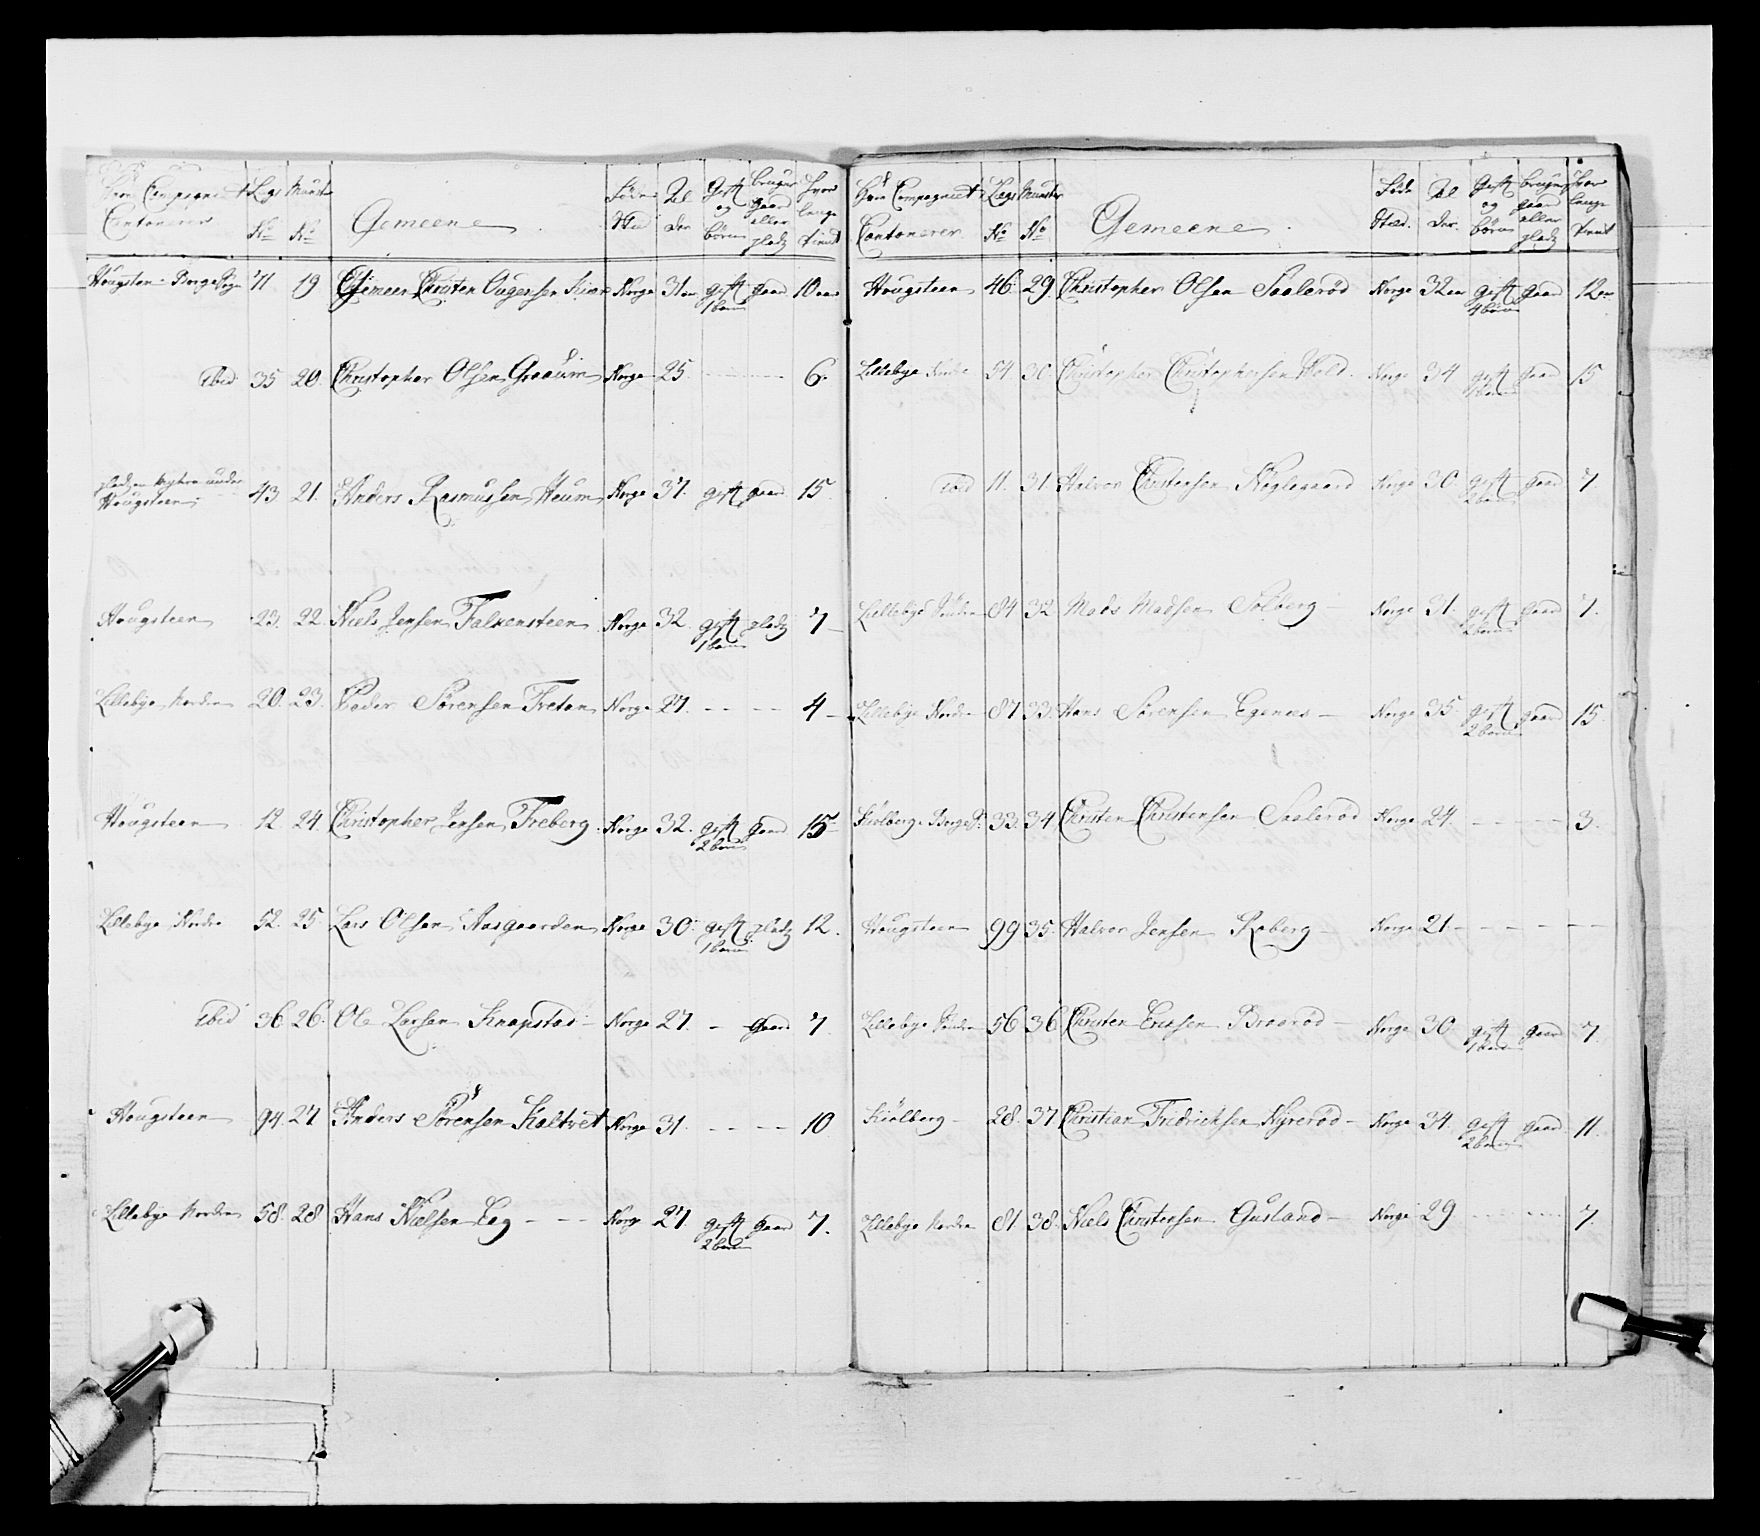 Hvor Compagniet Cantonerer | Legs No | Munster No | Gemeene | Føde Stæd | Al der | Gift og børn | bruger gaard eller pladz | hvor lenge tient
Hougsteen Borge Sogn 71 19 Gemeen Christen Ougensen Norge 31 aar gift 1 barn gaard 10 aar
ibid 35 20 Christopher Olsen Graaum Norge 25 - - - - 6.
pladzen under Hougsteen 43 21. Anders Rasmussen Heum Norge 37. gift gaard 15
Hougsteen 23. 22. Niels Jensen Falkensteen Norge 32. gift 1 barn pladz 7
Lillebye Nordre 20. 23. Peder Sørensen Treton Norge 27. - - - - 4
Hougsteen 12. 24. Christopher Jensen Freberg Norge 32. gift 2 børn gaard 15
Lillebye Nordre 52. 25. Lars Olsen Aasgaarden Norge 30. gift 1 barn pladz 12.
ibid 36. 26. Ole Larsen Knapstad Norge 27. - gaard 7.
Hougsteen 94. 27 Anders Sørensen Kaltvet Norge 31. - - - - 10
Lillebye Nordre 58. 28 Hans Nielsen Eeg - - - Norge 27. gift 2 børn gaard 7.
Hvor Compagniet Cantonerer | Legs No | Munster No | Gemeene | Føde Stæd. | Al der. | Gift og børn | bruger gaard eller pladz | hvor lenge tient
Hougsteen 46. 29. Christopher Olsen Saalerød Norge 32 aar gift 4 børn gaard 12 aar
Lillebye 54. 30 Christopher Christophersen Norge 34 gift 1 barn gaard 15
ibid 11. 31. Halvor Christensen Norge 30 gift 2 børn gaard 7
Lillebye 84 32. Mads Madsen Solberg Norge 31. gift 2 børn gaard 7.
Lillebye Nordre 87 33. Hans Sørensen Egenes Norge 35. gift 2 børn gaard 15.
Kiølberg Borge S. 33. 34. Christen Christensen Saalerød Norge 24. - - - - 3.
Hougsteen 99 35. Halvor Jensen Roberg Norge 21. - - - - -
Lillebye 56 36 Christen Ericksen Braarød Norge 30 gift 1 barn gaard 7.
Kiølberg 28. 37 Christian Fridricksen Nyrerød Norge 34. gift 2 børn gaard 11.
Lillebye Nordre 81. 38. Niels Christensen Gusland Norge 29 - - - - 7.